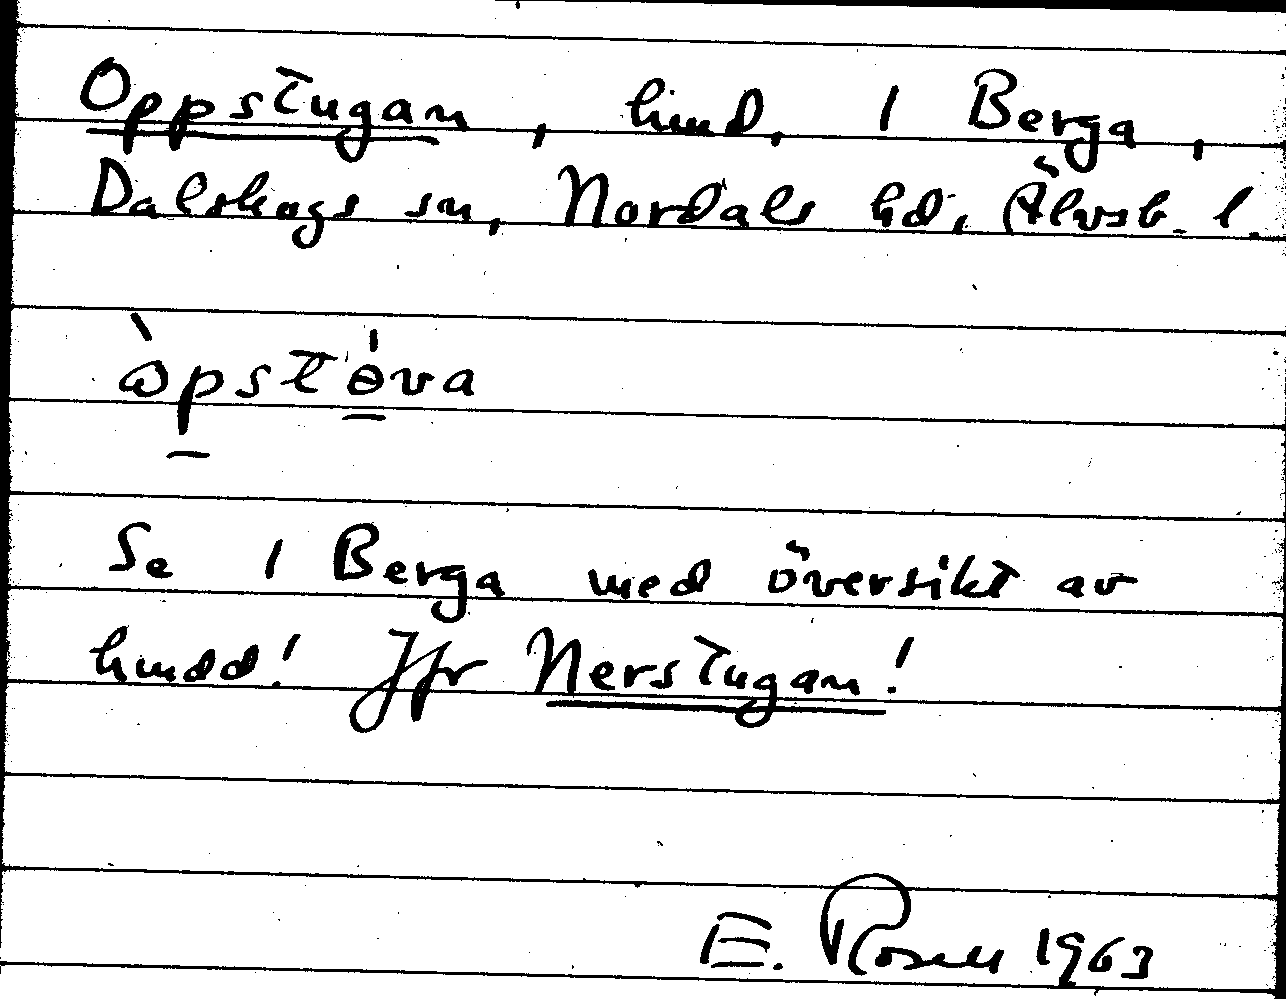 Oppstugan, hmd, 1 Berga,
Dalskogs sn, Nordals hd, Älvsb. l.
òpstöva
Se 1 Berga med översikt av
hmdd! Jfr Nerstugan!
E. Rosell 1963